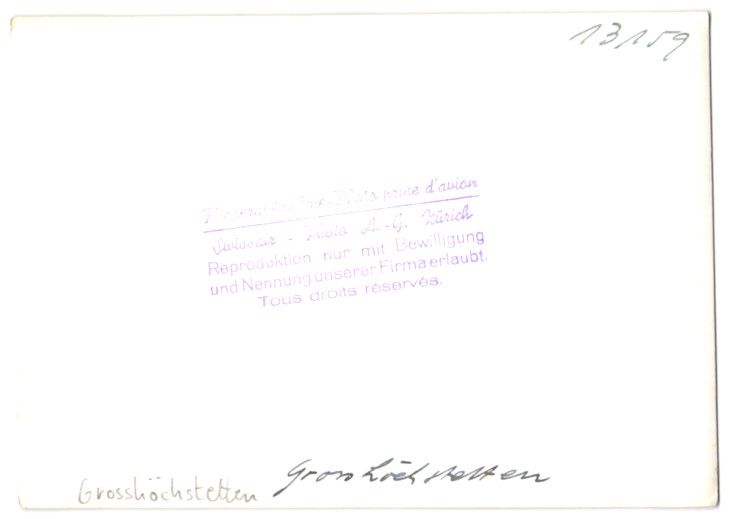 13159
Photo prise d'avion
Swissair - Photo A.-G. Zürich
Reproduktion nur mit Bewilligung
und Nennung unserer Firma erlaubt.
Tous droits réservés.
Grosshöchstetten
Grosshöchstetten